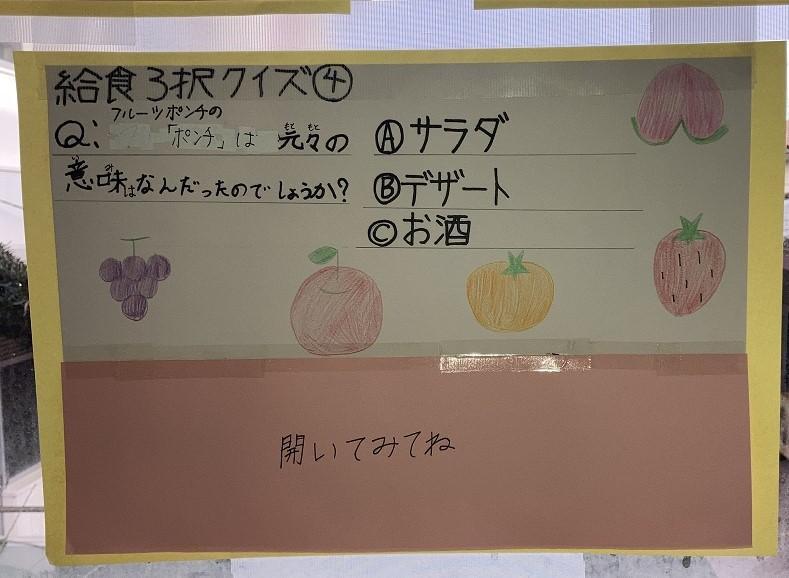 給食3択クイズ④
フルーツポンチの
Q:「ポンチ」は元々の
意味はなんだったのでしょうか?
Ⓐサラダ
Ⓑデザート
Ⓒお酒
開いてみてね